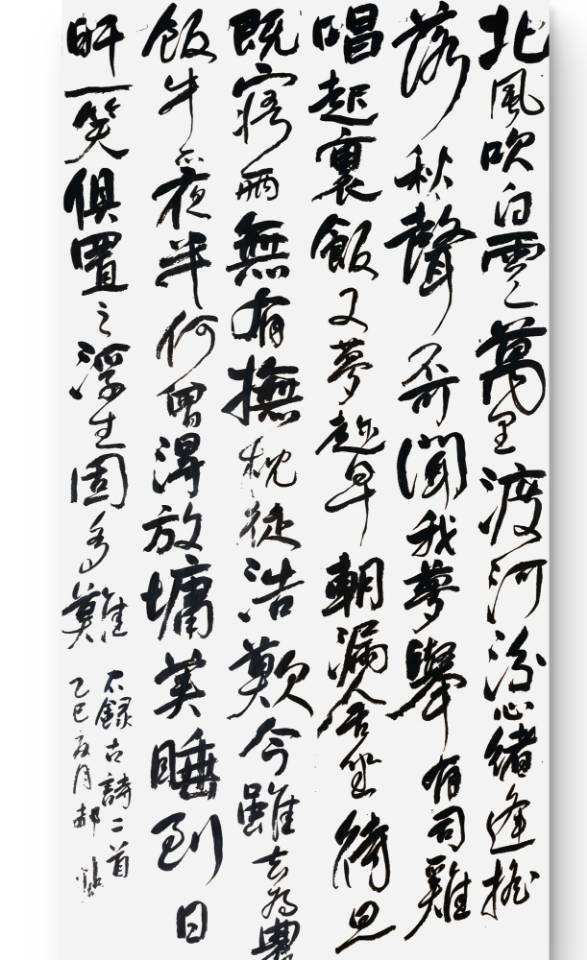 北風吹白雲萬里渡河汾心緒逢搖
落秋聲不可聞我夢舉有司雞
唱起裹飯又夢趍早朝漏舍坐待旦
既寤兩無有撫枕徒浩歎今雖去為農
飯牛亦夜半何曾得放慵美睡到日
旰一笑俱置之浮生固多難
右錄古詩二首
乙巳夏月郝